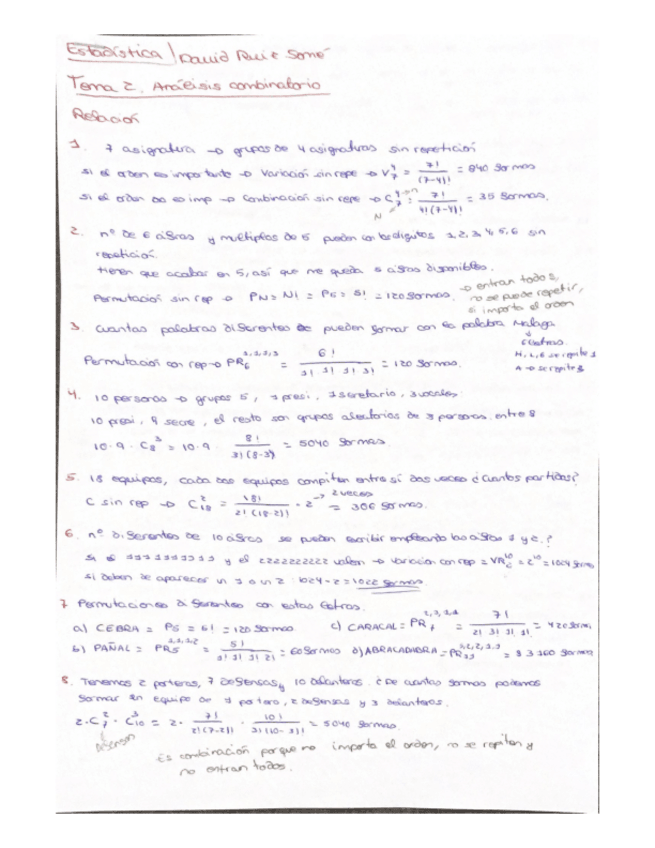 Estadística | David Ruiz Somé
Tema 2. Análisis combinatorio
Relación
1. 7 asignatura → grupos de 4 asignaturas sin repetición
si el orden es importante → Variación sin repe → V₇⁴ = 7! / (7-4)! = 840 formas
si el orden no es imp → Combinación sin repe → C₇⁴ = 7! / 4!(7-4)! = 35 formas.
N
2. nº de 6 cifras y multiplos de 5 pueden con los digitos 1, 2, 3, 4, 5, 6 sin
repetición.
tienen que acabar en 5, así que me queda 5 cifras disponibles.
Permutación sin rep → PN = N! = P5 = 5! = 120 formas.
→ entran todos,
no se puede repetir,
si importa el orden
3. Cuantas palabras diferentes se pueden formar con la palabra Malaga
6 letras
M, L, G se repite 1
A → se repite 3
Permutación con rep → PR₆ = 6! / 3! 1! 1! 1! = 120 formas.
4. 10 personas → grupos 5, 1 presi, 1 secretario, 3 vocales
10 presi, 9 secre, el resto son grupos aleatorios de 3 personas entre 8
10 · 9 · C₈³ = 10 · 9 · 8! / 3!(8-3)! = 5040 formas
5. 18 equipos, cada dos equipos compiten entre sí dos veces ¿Cuantos partidos?
C sin rep → C₁₈² = 18! / 2!(18-2)! · 2 → 2 veces = 306 formas.
6. nº diferentes de 10 cifras se pueden escribir empleando las cifras 1 y 2.?
si el 1111111111 y el 2222222222 valen → variacion con rep = VR₂¹⁰ = 2¹⁰ = 1024 formas
si deben de aparecer un 1 o un 2 : 1024 - 2 = 1022 formas
7 Permutaciones diferentes con estas letras.
a) CEBRA = P5 = 5! = 120 formas c) CARACAL = PR₇ = 7! / 2! 3! 1! 1! = 420 formas
b) PAÑAL = PR₅ = 5! / 1! 1! 1! 2! = 60 formas d) ABRACADABRA = PR₁₁ = 83160 formas
8. Tenemos 2 porteros, 7 defensas y 10 delanteros. ¿De cuantas formas podemos
formar un equipo de 1 portero, 2 defensas y 3 delanteros.
2 · C₇² · C₁₀³ = 2 · 7! / 2!(7-2)! · 10! / 3!(10-3)! = 5040 formas.
Es combinación porque no importa el orden, no se repiten y
no entran todos.